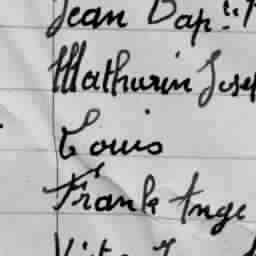 Jean Bap.te
Mathurin Jose
Louis
Frank Ange